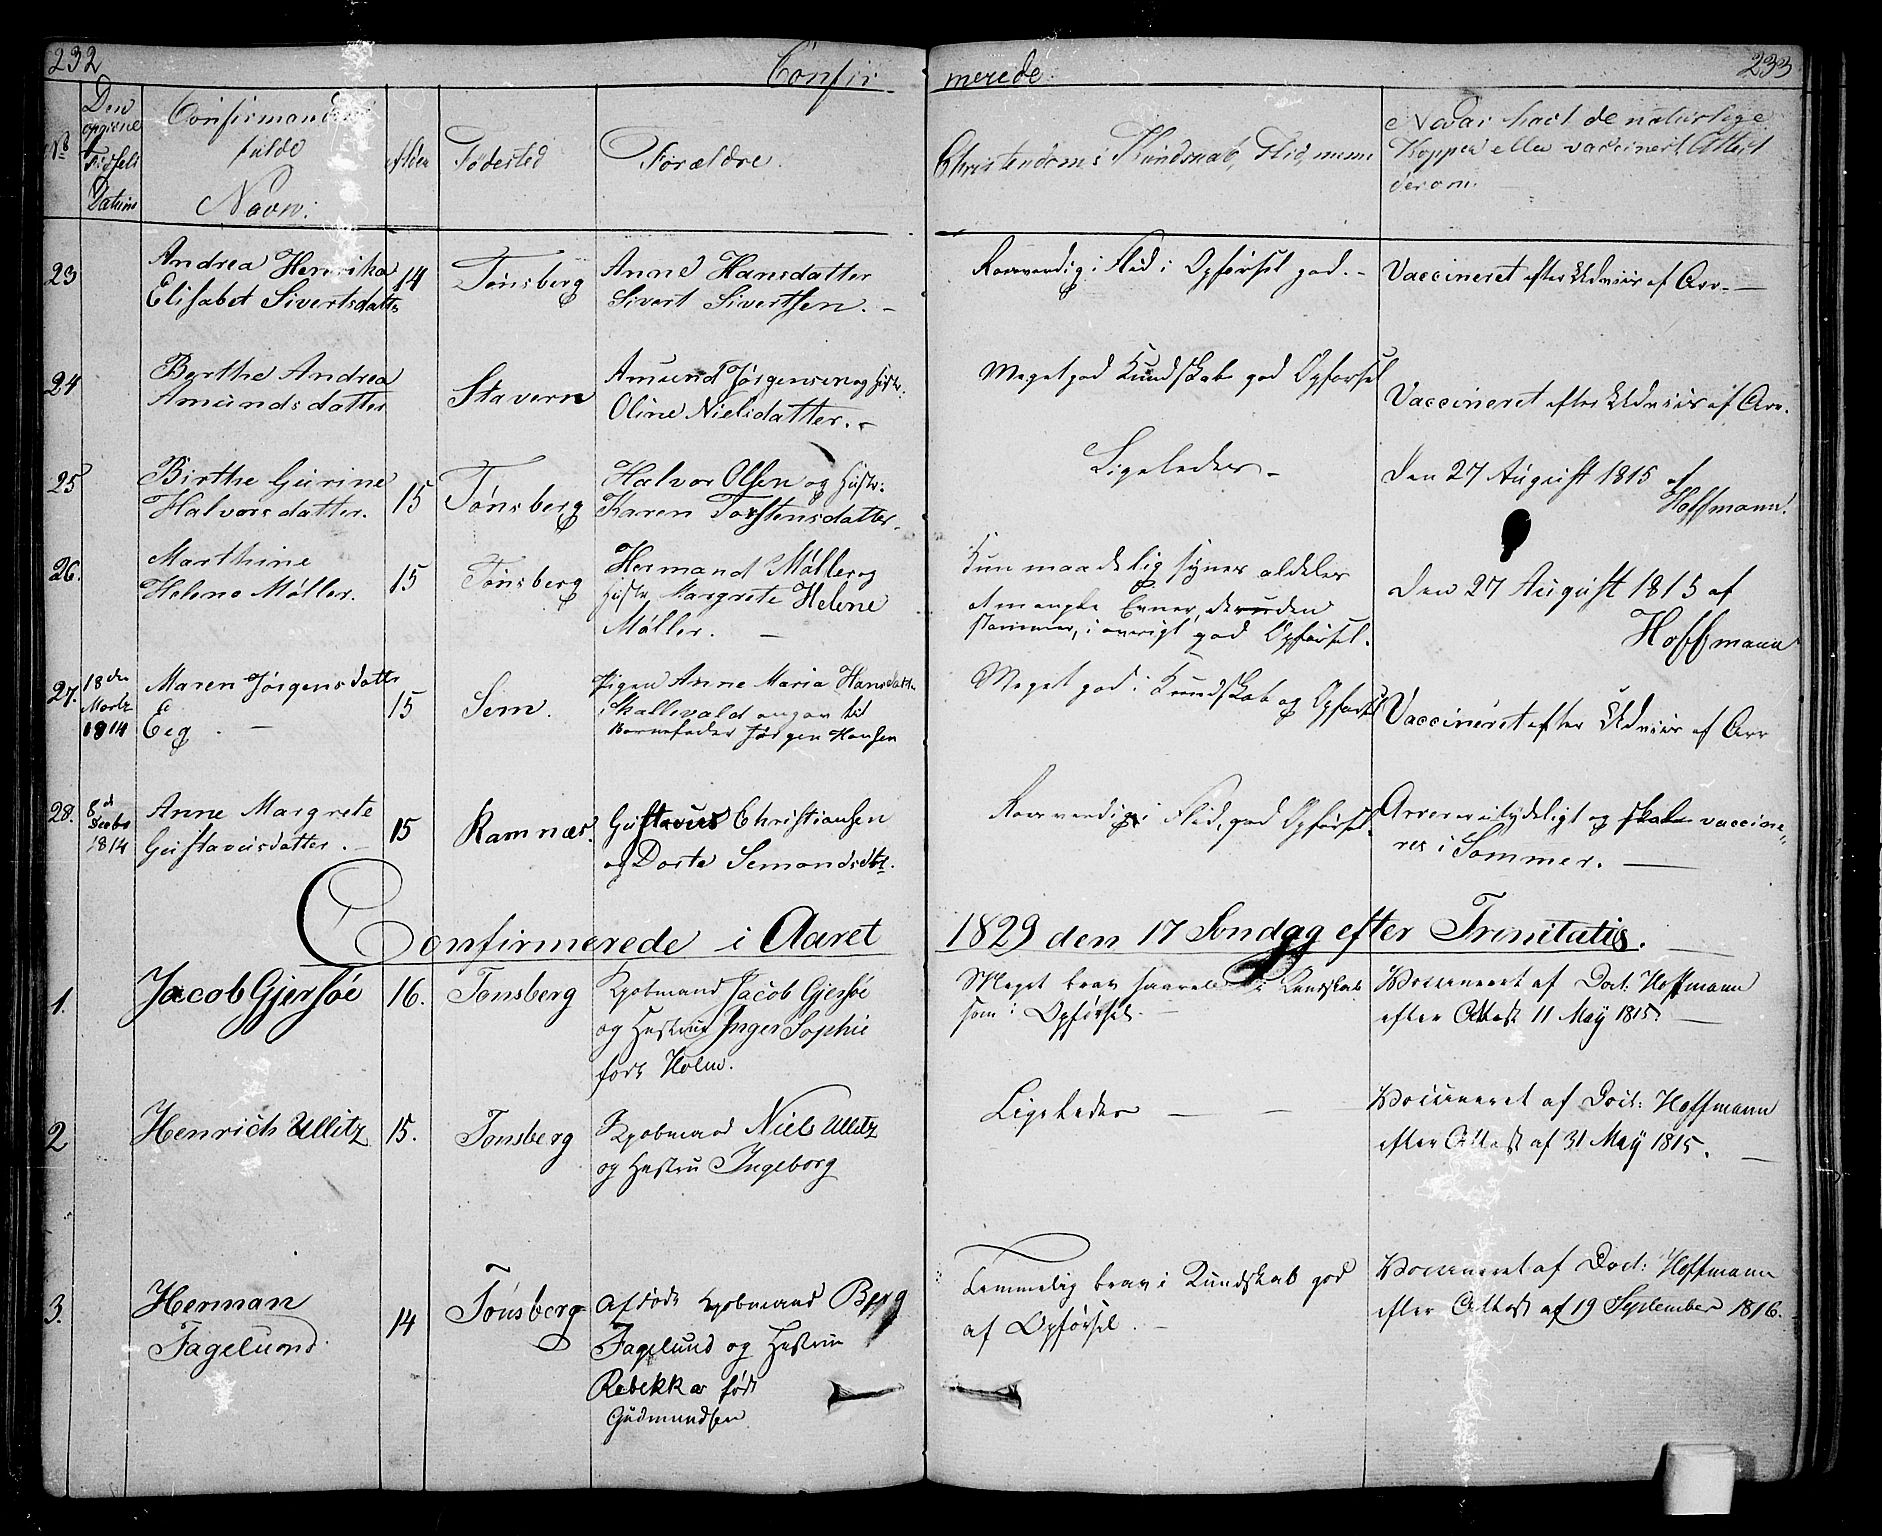 232
Confir merede 233
No
Den
opgivne
Fødsels
Datum
Confirmandens
fulde
Navn:
Alder
Fødested
Forældre.
Christendoms Kundskab, Flid, mm
Naar havt de naturlige
Kopper eller vaccinert, Attest
derom.
23
Andrea Henrika
Elisabet Sivertsdatter
14
Tønsberg
Anne Hansdatter
Sivert Sivertsen. -
Roesverdig i Flid i Opførsel god. -
Vaccineret efter Udviis af Arr. -
24
Berthe Andrea
Amundsdatter
Stavern
Amund Jørgensen og Hustr:
Oline Nielsdatter. -
Meget god Kundskab god Opførsel
Vaccineret efter Udviis af Arr.
25
Birthe Gurine
Halvorsdatter.
15
Tønsberg
Halvor Olsen og Hustr:
Karen Torstensdatter.
Ligeledes -
Den 27 August 1815 af
Hoffmann.
26.
Marthine
Helene Møller.
15
Tønsberg
Hermand Møller og
Hustr. Margrete Helene
Møller. -
Kun maadelig synes aldeles
at mangle Evner,
i øvrigt god Opførsel.
Den 27 August 1815 af
Hoffmann
27.
18 den
Marts
1814
Maren Jørgensdatter
Eeg. -
15
Sem.
Pigen Anne Maria Hansdatter
i Skallevald angav til
Barnefader Jørgen Hansen
Meget god i Kundskab og Opførsel
Vaccineret efter Udviis af Arr
28.
8de
Decbr
1814
Anne Margrete
Gustavusdatter. -
15
Ramnæs.
Gustavus Christiansen
og Dorte Semondsdtr.
Roesverdig i Flid, god Opførsel.
Arrene utydeligt og skal vaccine-
res i Sommer. -
Confirmerede i Aaret 1829 den 17 Søndag efter Trinitatis. -
1.
Jacob Gjersøe
16.
Tønsberg
Kjøbmand Jacob Gjersøe
og Hustrue Inger Sophie
født Holm.
Meget brav saavel i Kundskab
som i Opførsel. -
Vaccineret af Doct: Hoffmann
efter Attest 11 May 1815. -
2
Henrich Ullitz
15.
Tønsberg
Kjøbmand Niels Ullitz
og Hustru Ingeborg
Ligeledes - -
Vaccineret af Doct: Hoffmann
efter Attest af 31 May 1815. -
3.
Herman
Fagelund.
14
Tønsberg
Afdøde Kjøbmand Berg
Fagelund og Hustrue
Rebekka født
Gudmundsen
Temmelig brav i Kundskab god
af Opførsel. -
Vaccineret af Doct: Hoffmann
efter Attest af 19 September 1816.